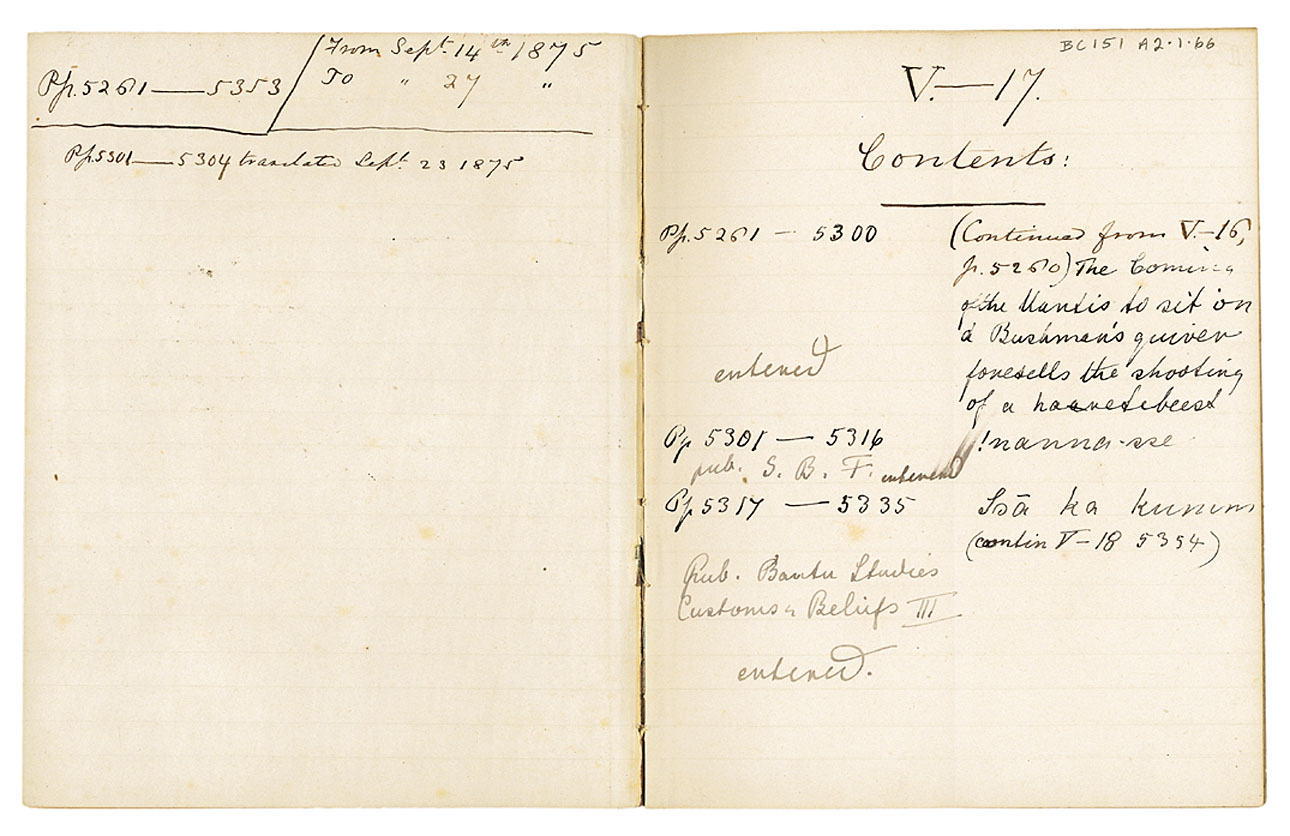 Pp. 5261 — 5353
From Sept. 14th 1875
To " 27 "
Pp. 5301 — 5304 translated Sept. 23 1875
BC151 A2.1.66
V.—17.
Contents:
Pp. 5261 — 5300 (Continued from V.—16,
p. 5260) The Coming
of the Mantis to sit on
a Bushman's quiver
entered foretells the shooting
of a haartebeest
Pp 5301 — 5316 !nanna-sse
pub. S. B. F. entered
Pp 5317 — 5335 Tsā ka kumm
(contin V—18 5354)
Pub. Bantu Studies
Customs & Beliefs III
entered.